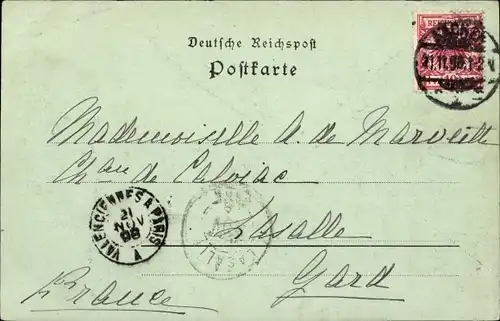 Deutsche Reichspost
Postkarte
21.11.98.1-2 N
Mademoiselle A. de Marveille
Chau de Calviac
Lasalle
Gard
France
VALENCIENNES A PARIS
21
NOV
98
LASALLE